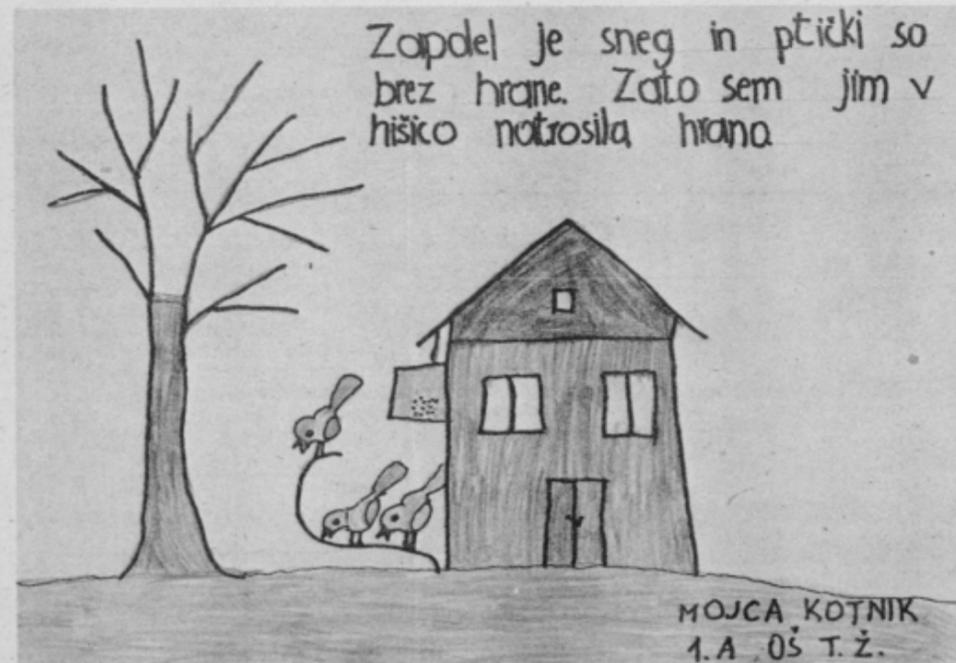 Zapadel je sneg in ptički so
brez hrane. Zato sem jim v
hišico natrosila hrano
MOJCA KOTNIK
1. A OŠ T. Ž.